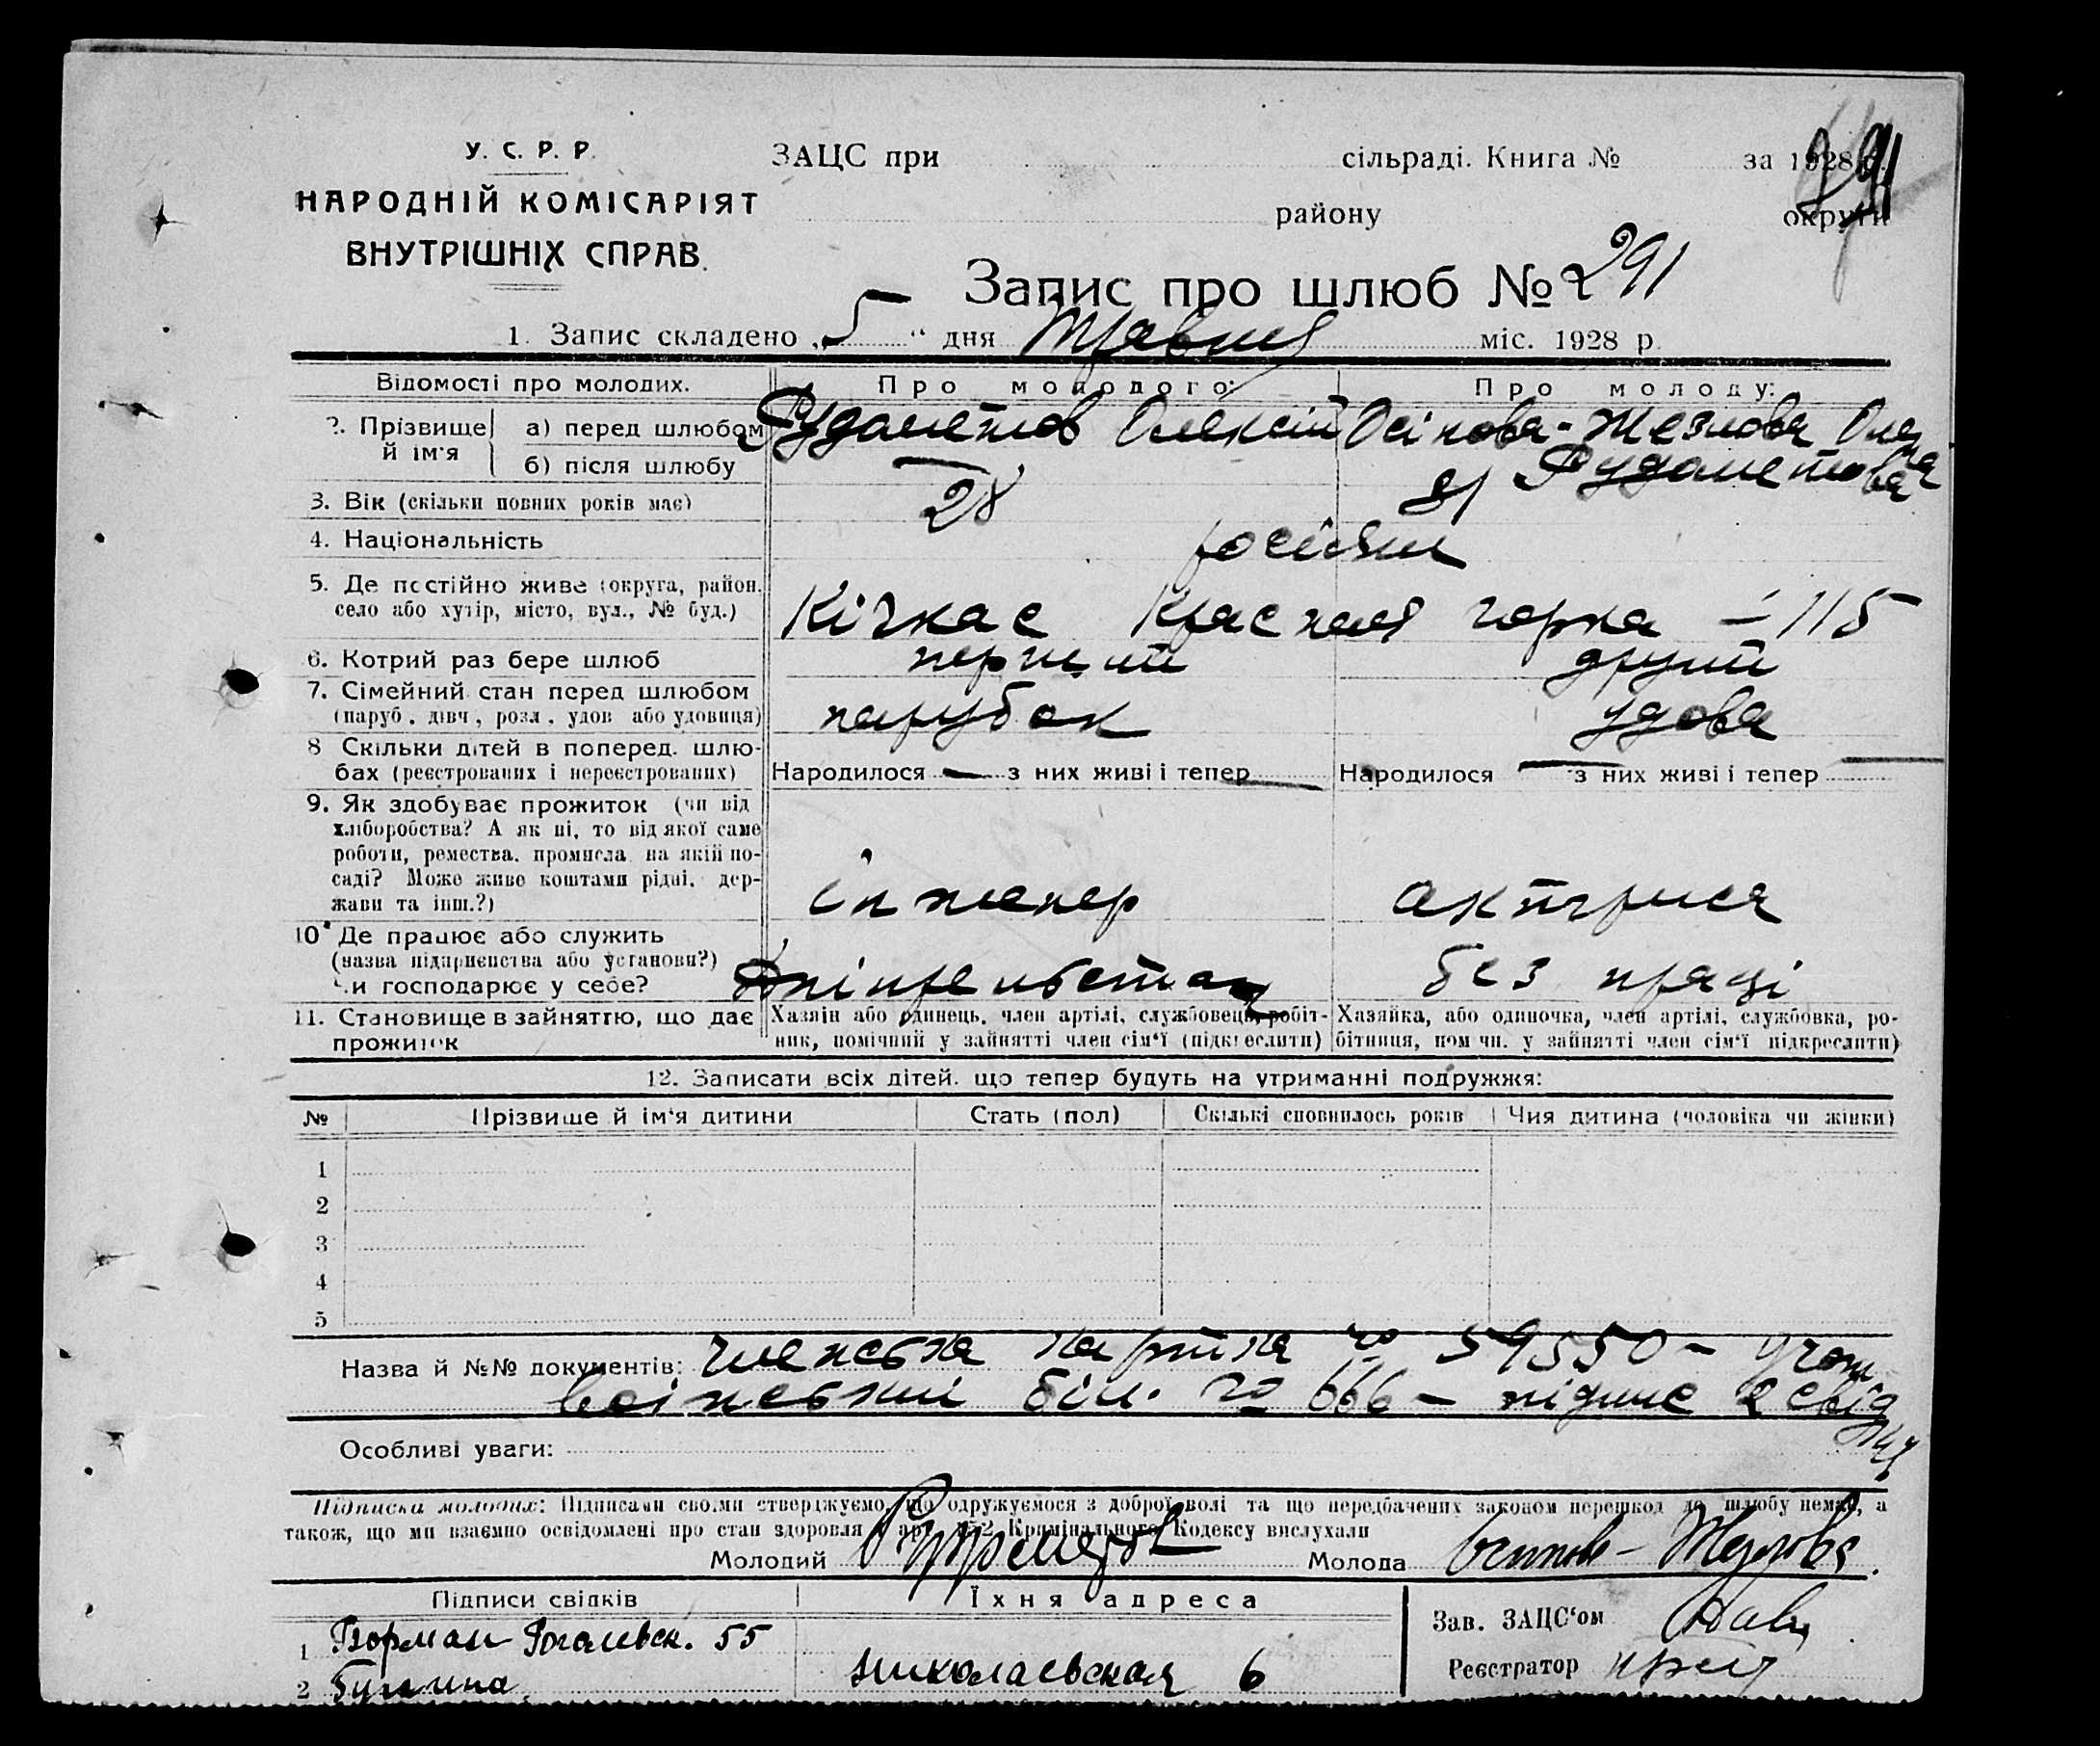 У. С. Р. Р.
НАРОДНІЙ КОМІСАРІЯТ
ВНУТРІШНІХ СПРАВ.
ЗАЦС при сільраді. Книга № за 1928 р.
району округи
291
Запис про шлюб № 291
1. Запис складено „5“ дня Травня міс. 1928 р.
Відомості про молодих. Про молодого: Про молоду:
2. Прізвище й ім'я а) перед шлюбом Рудометов Олексій Осіпова-Жезлова Олена
б) після шлюбу — Рудометова
3. Вік (скільки повних років має) 28
4. Національність росіяни
5. Де постійно живе (округа, район, село або хутір, місто, вул., № буд.) Кічкас Красная горка – 115
6. Котрий раз бере шлюб перший другий
7. Сімейний стан перед шлюбом (паруб., дівч., розл., удов. або удовиця) парубок удова
8. Скільки дітей в поперед. шлюбах (реєстрованих і нереєстрованих) Народилося — з них живі і тепер — Народилося — з них живі і тепер —
9. Як здобуває прожиток (чи від хліборобства? А як ні, то від якої саме роботи, ремества, промисла, на якій посаді? Може живе коштами рідні, держави та інш.?) інженер актриса
10. Де працює або служить (назва підприємства або установи?) Чи господарює у себе? Дніпрельстан без праці
11. Становище в зайняттю, що дає прожиток
Хазяїн або одинець, член артілі, службовець, робітник, помічний у зайнятті член сім'ї (підкреслити)
Хазяйка, або одиночка, член артілі, службовка, робітниця, помічн. у зайнятті член сім'ї підкреслити)
12. Записати всіх дітей, що тепер будуть на утриманні подружжя:
№ Прізвище й ім'я дитини Стать (пол) Скількі сповнилось років Чия дитина (чоловіка чи жінки)
1
2
3
4
5
Назва й №№ документів: Членська картка № 59550 –
воінський біл. № 666 – підпис 2 свід
Особливі уваги:
Підписка молодих: Підписами своїми стверджуємо, що одружуємося з доброї волі та що передбачених законом перешкод до шлюбу немає, а
також, що ми взаємно освідомлені про стан здоровля і арт. 152 Кримінального Кодексу вислухали
Молодий Рудометов Молода Осипова-Жезлова.
Підписи свідків Їхня адреса
Зав. ЗАЦС'ом
1 55
2 Николаевская 6
Реєстратор